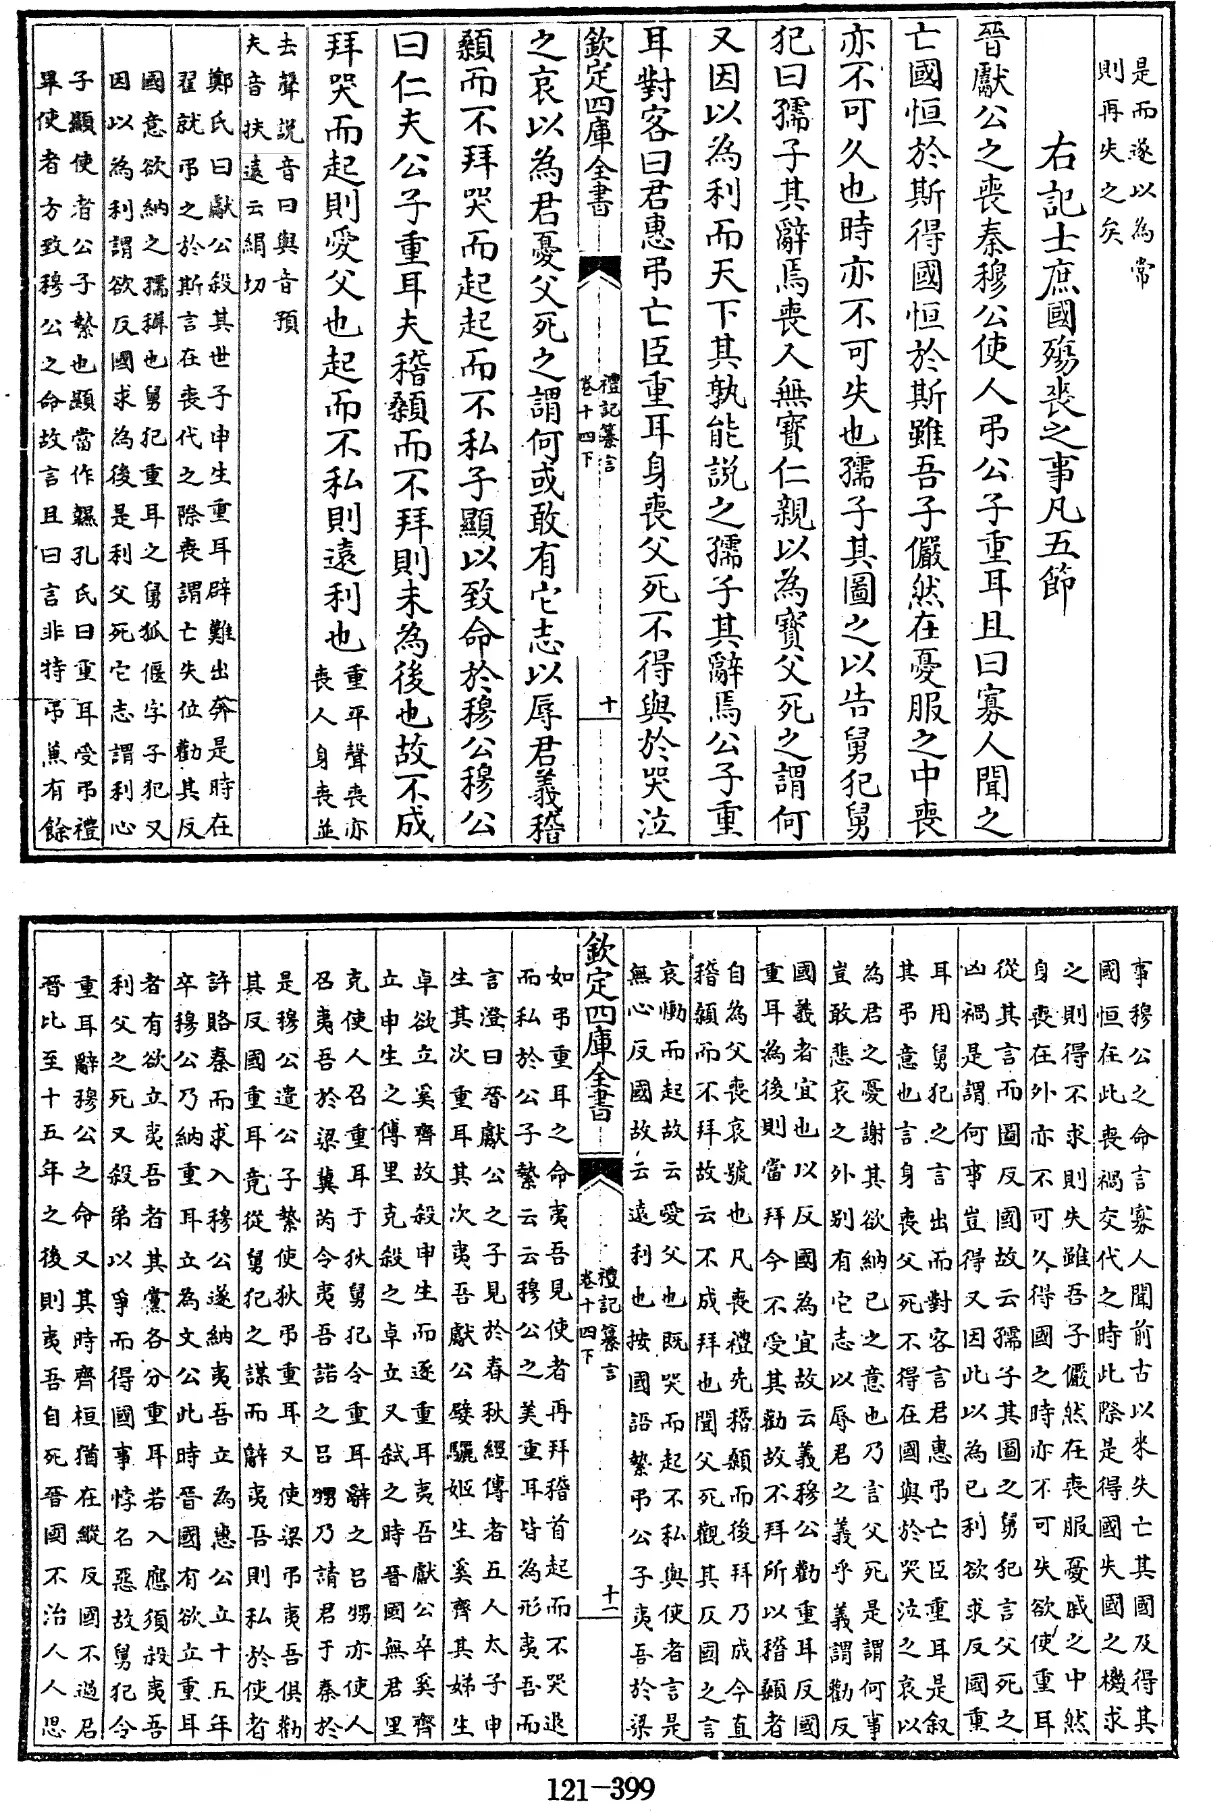 是而遂以為常
則再失之矣
右記士庶國殤喪之事凡五節
晉獻公之喪秦穆公使人弔公子重耳且曰寡人聞之
亡國恒於斯得國恒於斯雖吾子儼然在憂服之中喪
亦不可久也時亦不可失也孺子其圖之以告舅犯舅
犯曰孺子其辭焉喪人無寶仁親以為寶父死之謂何
又因以為利而天下其孰能説之孺子其辭焉公子重
耳對客曰君惠弔亡臣重耳身喪父死不得與於哭泣
欽定四庫全書
禮記纂言
卷十四下
十
之哀以為君憂父死之謂何或敢有它志以辱君義稽
顙而不拜哭而起起而不私子顯以致命於穆公穆公
曰仁夫公子重耳夫稽顙而不拜則未為後也故不成
拜哭而起則愛父也起而不私則遠利也
重平聲喪亦
喪人身喪並
去聲説音曰與音預
夫音扶遠云絹切
鄭氏曰獻公殺其世子申生重耳辟難出奔是時在
翟就弔之於斯言在喪代之際喪謂亡失位勸其反
國意欲納之孺稺也舅犯重耳之舅狐偃字子犯又
因以為利謂欲反國求為後是利父死它志謂利心
子顯使者公子縶也顯當作韅孔氏曰重耳受弔禮
畢使者方致穆公之命故言且曰言非特弔兼有餘
事穆公之命言寡人聞前古以來失亡其國及得其
國恒在此喪禍交代之時此際是得國失國之機求
之則得不求則失雖吾子儼然在喪服憂戚之中然
身喪在外亦不可久得國之時亦不可失欲使重耳
從其言而圖反國故云孺子其圖之舅犯言父死之
凶禍是謂何事豈得又因此以為己利欲求反國重
耳用舅犯之言出而對客言君惠弔亡臣重耳是叙
其弔意也言身喪父死不得在國與於哭泣之哀以
為君之憂謝其欲納己之意也乃言父死是謂何事
豈敢悲哀之外别有它志以辱君之義乎義謂勸反
國義者宜也以反國為宜故云義穆公勸重耳反國
重耳為後則當拜今不受其勸故不拜所以稽顙者
自為父喪哀號也凡喪禮先稽顙而後拜乃成今直
稽顙而不拜故云不成拜也聞父死觀其反國之言
哀慟而起故云愛父也既哭而起不私與使者言是
無心反國故云遠利也按國語縶弔公子夷吾於梁
欽定四庫全書
禮記纂言
卷十四下
十一
如弔重耳之命夷吾見使者再拜稽首起而不哭退
而私於公子縶云云穆公之美重耳皆為形夷吾而
言澄曰晉獻公之子見於春秋經傳者五人太子申
生其次重耳其次夷吾獻公嬖驪姬生奚齊其娣生
卓欲立奚齊故殺申生而逐重耳夷吾獻公卒奚齊
立申生之傅里克殺之卓立又弑之時晉國無君里
克使人召重耳于狄舅犯令重耳辭之吕甥亦使人
召夷吾於梁冀芮令夷吾諾之吕甥乃請君于秦於
是穆公遣公子縶使狄弔重耳又使梁弔夷吾俱勸
其反國重耳竟從舅犯之謀而辭夷吾則私於使者
許賂秦而求入穆公遂納夷吾立為惠公立十五年
卒穆公乃納重耳立為文公此時晉國有欲立重耳
者有欲立夷吾者其黨各分重耳若入應須殺夷吾
利父之死又殺弟以爭而得國事悖名惡故舅犯令
重耳辭穆公之命又其時齊桓猶在縱反國不過君
晉比至十五年之後則夷吾自死晉國不治人人思
121-399